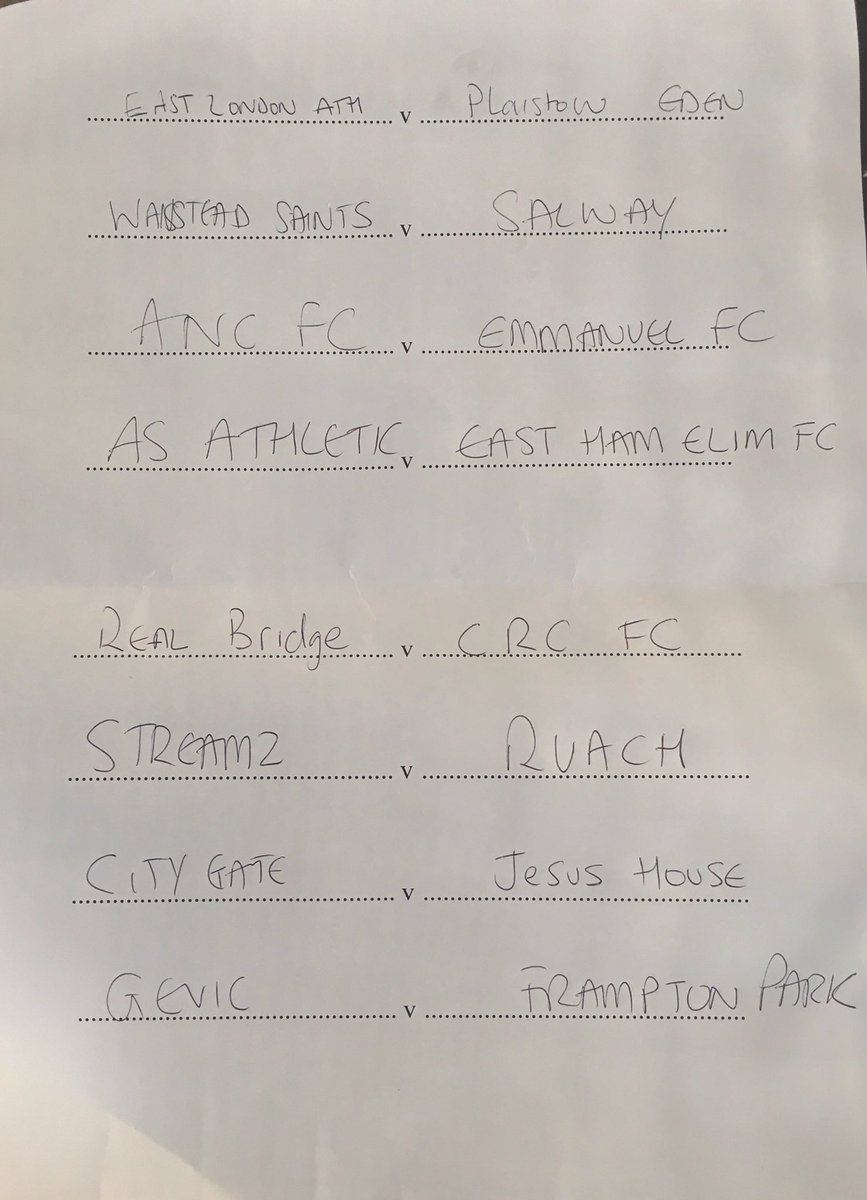 EAST LONDON ATH v Plaistow EDEN
WANSTEAD SAINTS v SALWAY
ANC FC v EMMANUEL FC
AS ATHLETIC v EAST HAM ELIM FC
REAL Bridge v CRC FC
STREAMZ v RUACH
CITY GATE v JESUS HOUSE
GEVIC v FRAMPTON PARK